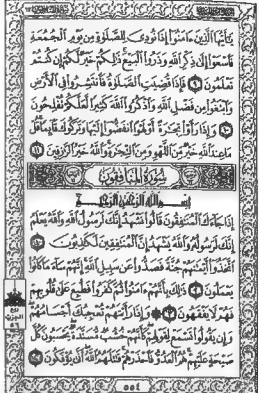 يَٰٓأَيُّهَا ٱلَّذِينَ ءَامَنُوٓا۟ إِذَا نُودِىَ لِلصَّلَوٰةِ مِن يَوْمِ ٱلْجُمُعَةِ
فَٱسْعَوْا۟ إِلَىٰ ذِكْرِ ٱللَّهِ وَذَرُوا۟ ٱلْبَيْعَ ذَٰلِكُمْ خَيْرٌ لَّكُمْ إِن كُنتُمْ
تَعْلَمُونَ ٩ فَإِذَا قُضِيَتِ ٱلصَّلَوٰةُ فَٱنتَشِرُوا۟ فِى ٱلْأَرْضِ
وَٱبْتَغُوا۟ مِن فَضْلِ ٱللَّهِ وَٱذْكُرُوا۟ ٱللَّهَ كَثِيرًا لَّعَلَّكُمْ تُفْلِحُونَ
١٠ وَإِذَا رَأَوْا۟ تِجَٰرَةً أَوْ لَهْوًا ٱنفَضُّوٓا۟ إِلَيْهَا وَتَرَكُوكَ قَآئِمًا قُلْ
مَا عِندَ ٱللَّهِ خَيْرٌ مِّنَ ٱللَّهْوِ وَمِنَ ٱلتِّجَٰرَةِ وَٱللَّهُ خَيْرُ ٱلرَّٰزِقِينَ ١١
سُورَةُ ٱلْمُنَافِقُونَ
بِسْمِ ٱللَّهِ ٱلرَّحْمَٰنِ ٱلرَّحِيمِ
إِذَا جَآءَكَ ٱلْمُنَٰفِقُونَ قَالُوا۟ نَشْهَدُ إِنَّكَ لَرَسُولُ ٱللَّهِ وَٱللَّهُ يَعْلَمُ
إِنَّكَ لَرَسُولُهُۥ وَٱللَّهُ يَشْهَدُ إِنَّ ٱلْمُنَٰفِقِينَ لَكَٰذِبُونَ ١
ٱتَّخَذُوٓا۟ أَيْمَٰنَهُمْ جُنَّةً فَصَدُّوا۟ عَن سَبِيلِ ٱللَّهِ إِنَّهُمْ سَآءَ مَا كَانُوا۟
يَعْمَلُونَ ٢ ذَٰلِكَ بِأَنَّهُمْ ءَامَنُوا۟ ثُمَّ كَفَرُوا۟ فَطُبِعَ عَلَىٰ قُلُوبِهِمْ
فَهُمْ لَا يَفْقَهُونَ ٣ وَإِذَا رَأَيْتَهُمْ تُعْجِبُكَ أَجْسَامُهُمْ
وَإِن يَقُولُوا۟ تَسْمَعْ لِقَوْلِهِمْ كَأَنَّهُمْ خُشُبٌ مُّسَنَّدَةٌ يَحْسَبُونَ كُلَّ
صَيْحَةٍ عَلَيْهِمْ هُمُ ٱلْعَدُوُّ فَٱحْذَرْهُمْ قَٰتَلَهُمُ ٱللَّهُ أَنَّىٰ يُؤْفَكُونَ ٤
ربع
الحزب
٥٦
٥٥٤